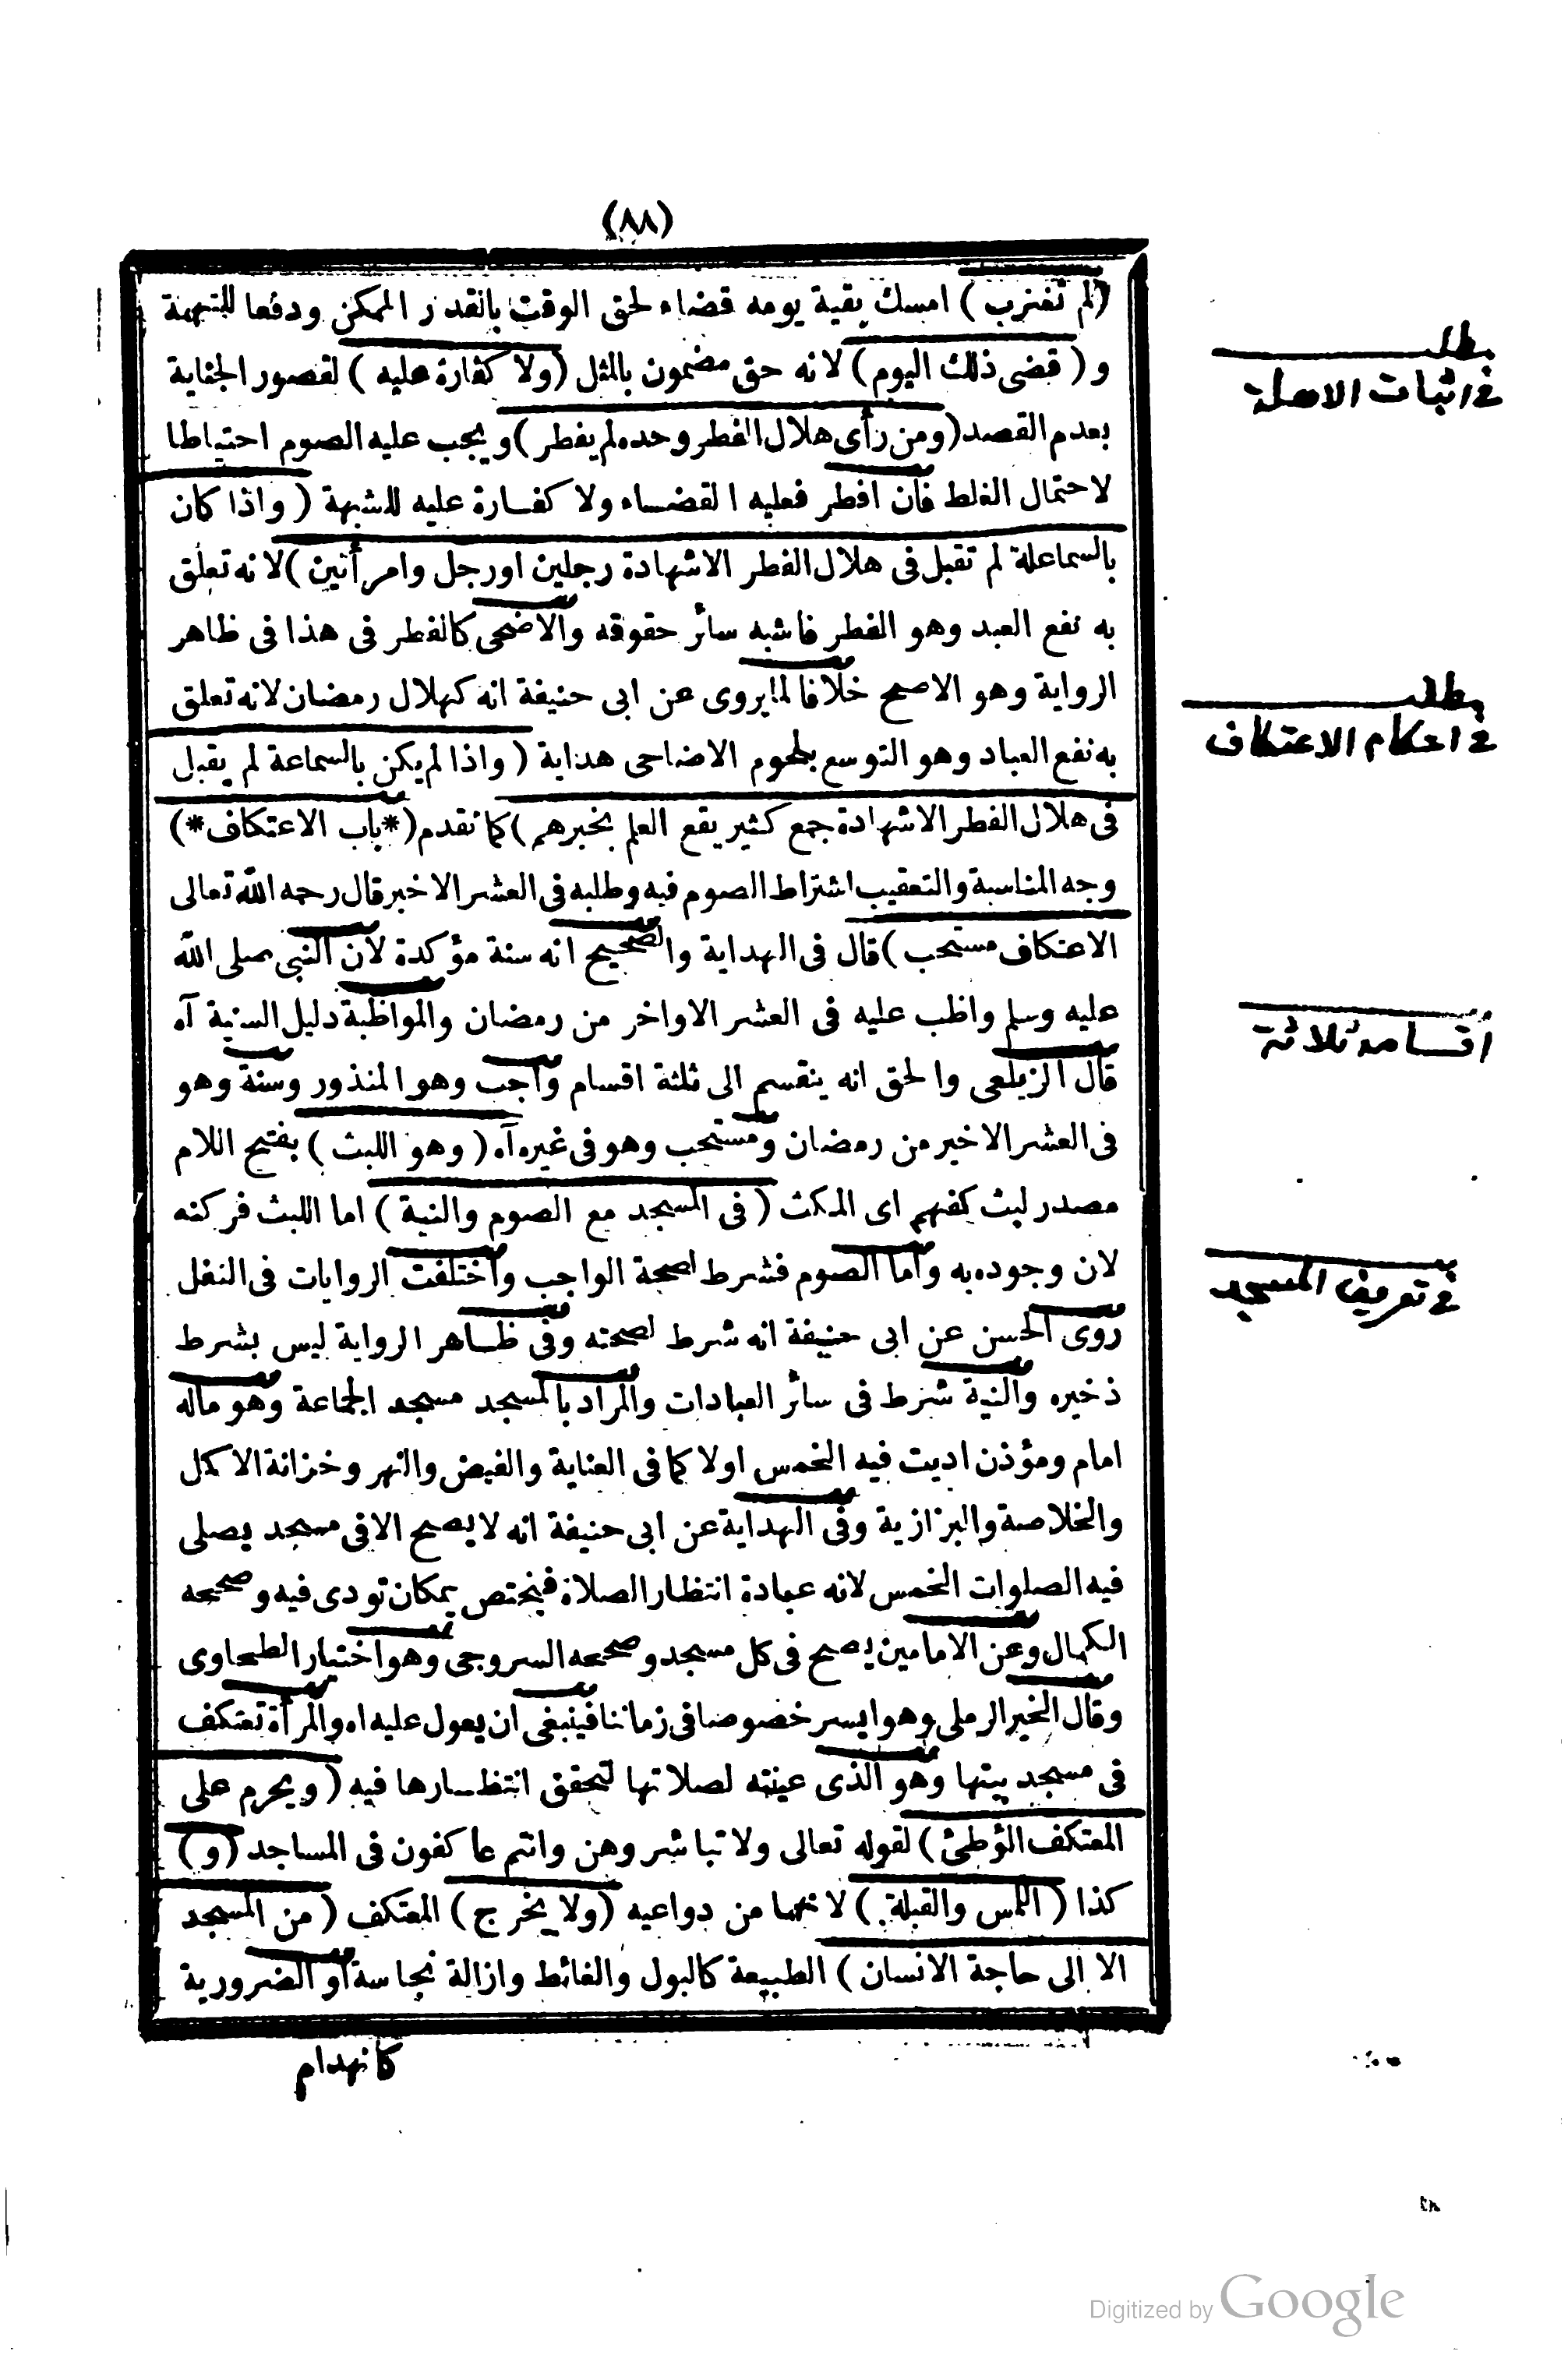 (٨٨)
(لم تغرب) امسك بقية يومه قضاء لحق الوقت بالقدر الممكن ودفعا للتهمة
و (قضى ذلك اليوم) لانه حق مضمون بالمثل (ولا كفارة عليه) لقصور الجناية
بعدم القصد (ومن رأى هلال الفطر وحده لم يفطر) ويجب عليه الصوم احتياطا
لاحتمال الغلط فان افطر فعليه القضاء ولا كفارة عليه للشبهة (واذا كان
بالسماء علة لم تقبل فى هلال الفطر الا شهادة رجلين او رجل وامرأتين) لانه تعلق
به نفع العبد وهو الفطر فاشبه سائر حقوقه والاضحى كالفطر فى هذا فى ظاهر
الرواية وهو الاصح خلافا لما يروى عن ابى حنيفة انه كهلال رمضان لانه تعلق
به نفع العباد وهو التوسع بلحوم الاضاحى هداية (واذا لم يكن بالسماء علة لم يقبل
فى هلال الفطر الا شهادة جمع كثير يقع العلم بخبرهم) كما تقدم (*باب الاعتكاف*)
وجه المناسبة والتعقيب اشتراط الصوم فيه وطلبه فى العشر الاخير قال رحمه الله تعالى
الاعتكاف مستحب) قال فى الهداية والصحيح انه سنة مؤكدة لان النبى صلى الله
عليه وسلم واظب عليه فى العشر الاواخر من رمضان والمواظبة دليل السنية آه
قال الزيلعى والحق انه ينقسم الى ثلثة اقسام واجب وهو المنذور وسنة وهو
فى العشر الاخير من رمضان ومستحب وهو فى غيره آه (وهو اللبث) بفتح اللام
مصدر لبث كفهم اى المكث (فى المسجد مع الصوم والنية) اما اللبث فركنه
لان وجوده به واما الصوم فشرط لصحة الواجب واختلفت الروايات فى النفل
روى الحسن عن ابى حنيفة انه شرط لصحته وفى ظاهر الرواية ليس بشرط
ذخيره والنية شرط فى سائر العبادات والمراد بالمسجد مسجد الجماعة وهو ماله
امام ومؤذن اديت فيه الخمس اولا كما فى العناية والفيض والنهر وخزانة الاكمل
والخلاصة والبزازية وفى الهداية عن ابى حنيفة انه لا يصح الا فى مسجد يصلى
فيه الصلوات الخمس لانه عبادة انتظار الصلاة فيختص بمكان تودى فيه وصححه
الكمال وعن الامامين يصح فى كل مسجد وصححه السروجى وهو اختيار الطحاوى
وقال الخير الرملى وهو ايسر خصوصا فى زماننا فينبغى ان يعول عليه اه والمرأة تعتكف
فى مسجد بيتها وهو الذى عينته لصلاتها لتحقق انتظارها فيه (ويحرم على
المعتكف الوطئ) لقوله تعالى ولا تباشروهن وانتم عاكفون فى المساجد (و)
كذا (اللمس والقبلة) لانهما من دواعيه (ولا يخرج) المعتكف (من المسجد
الا الى حاجة الانسان) الطبيعة كالبول والغائط وازالة نجاسة او الضرورية
كانهدام
مطلب
فى اثبات الاهلة
مطلب
فى احكام الاعتكاف
اقسامه ثلاثة
فى تعريف المسجد
Digitized by Google